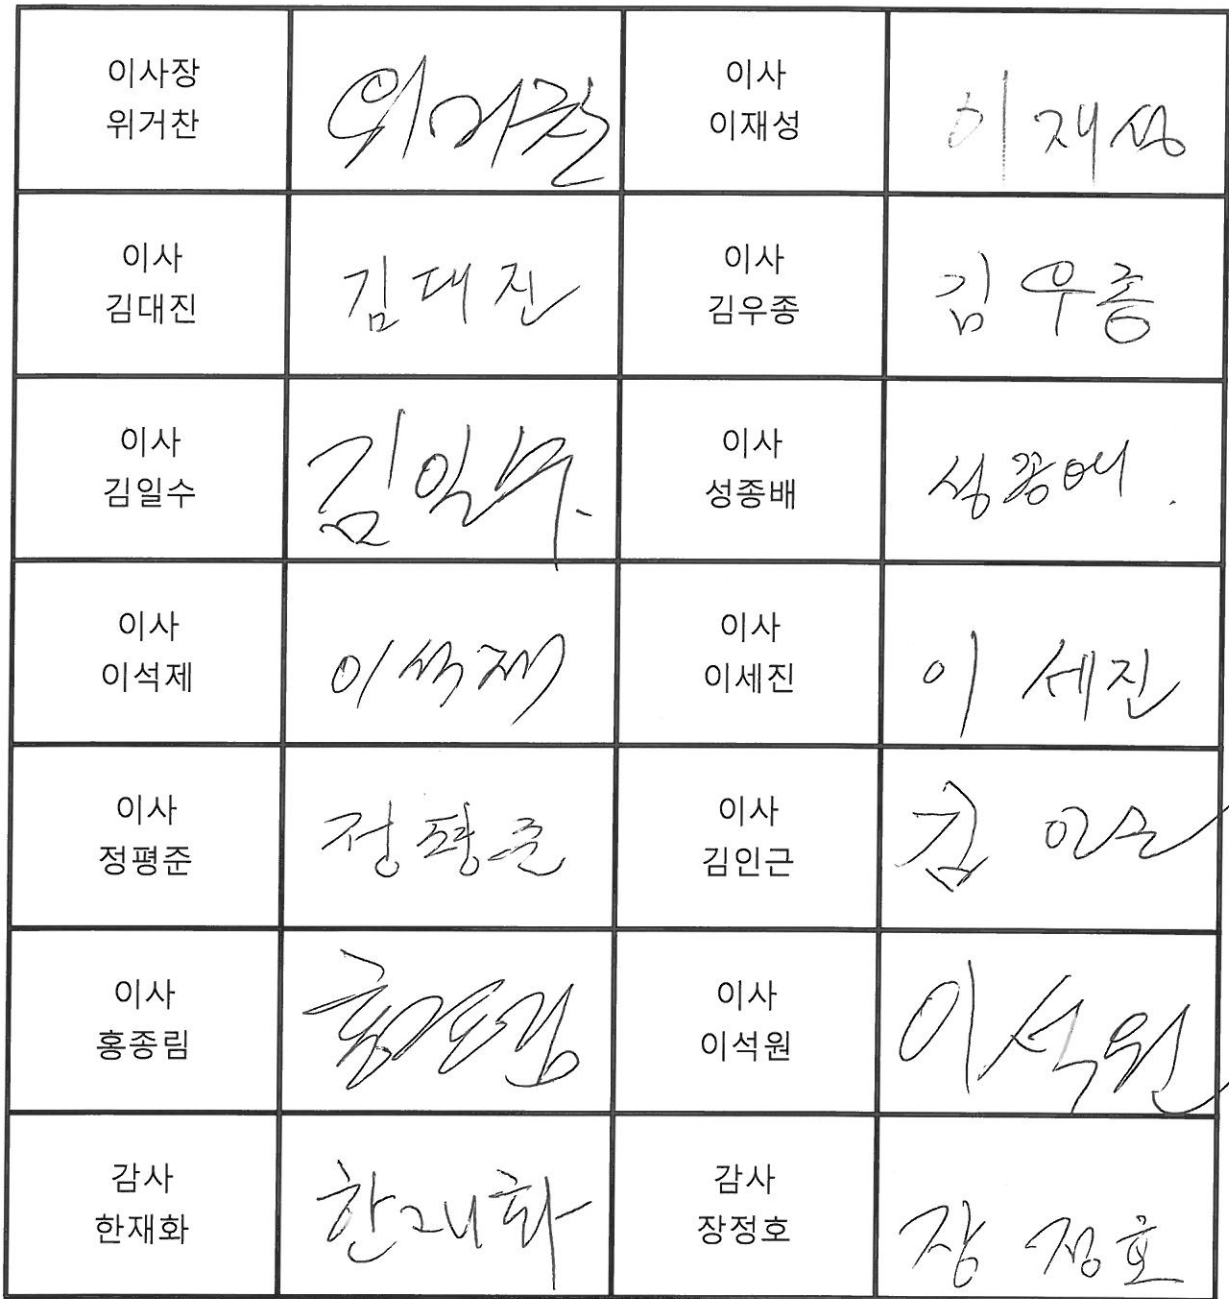 이사장
위거찬
위거찬
이사
이재성
이재성
이사
김대진
김대진
이사
김우종
김우종
이사
김일수
김일수.
이사
성종배
성종배.
이사
이석제
이석제
이사
이세진
이세진
이사
정평준
정평준
이사
김인근
김인근
이사
홍종림
홍종림
이사
이석원
이석원
감사
한재화
한재화
감사
장정호
장정호